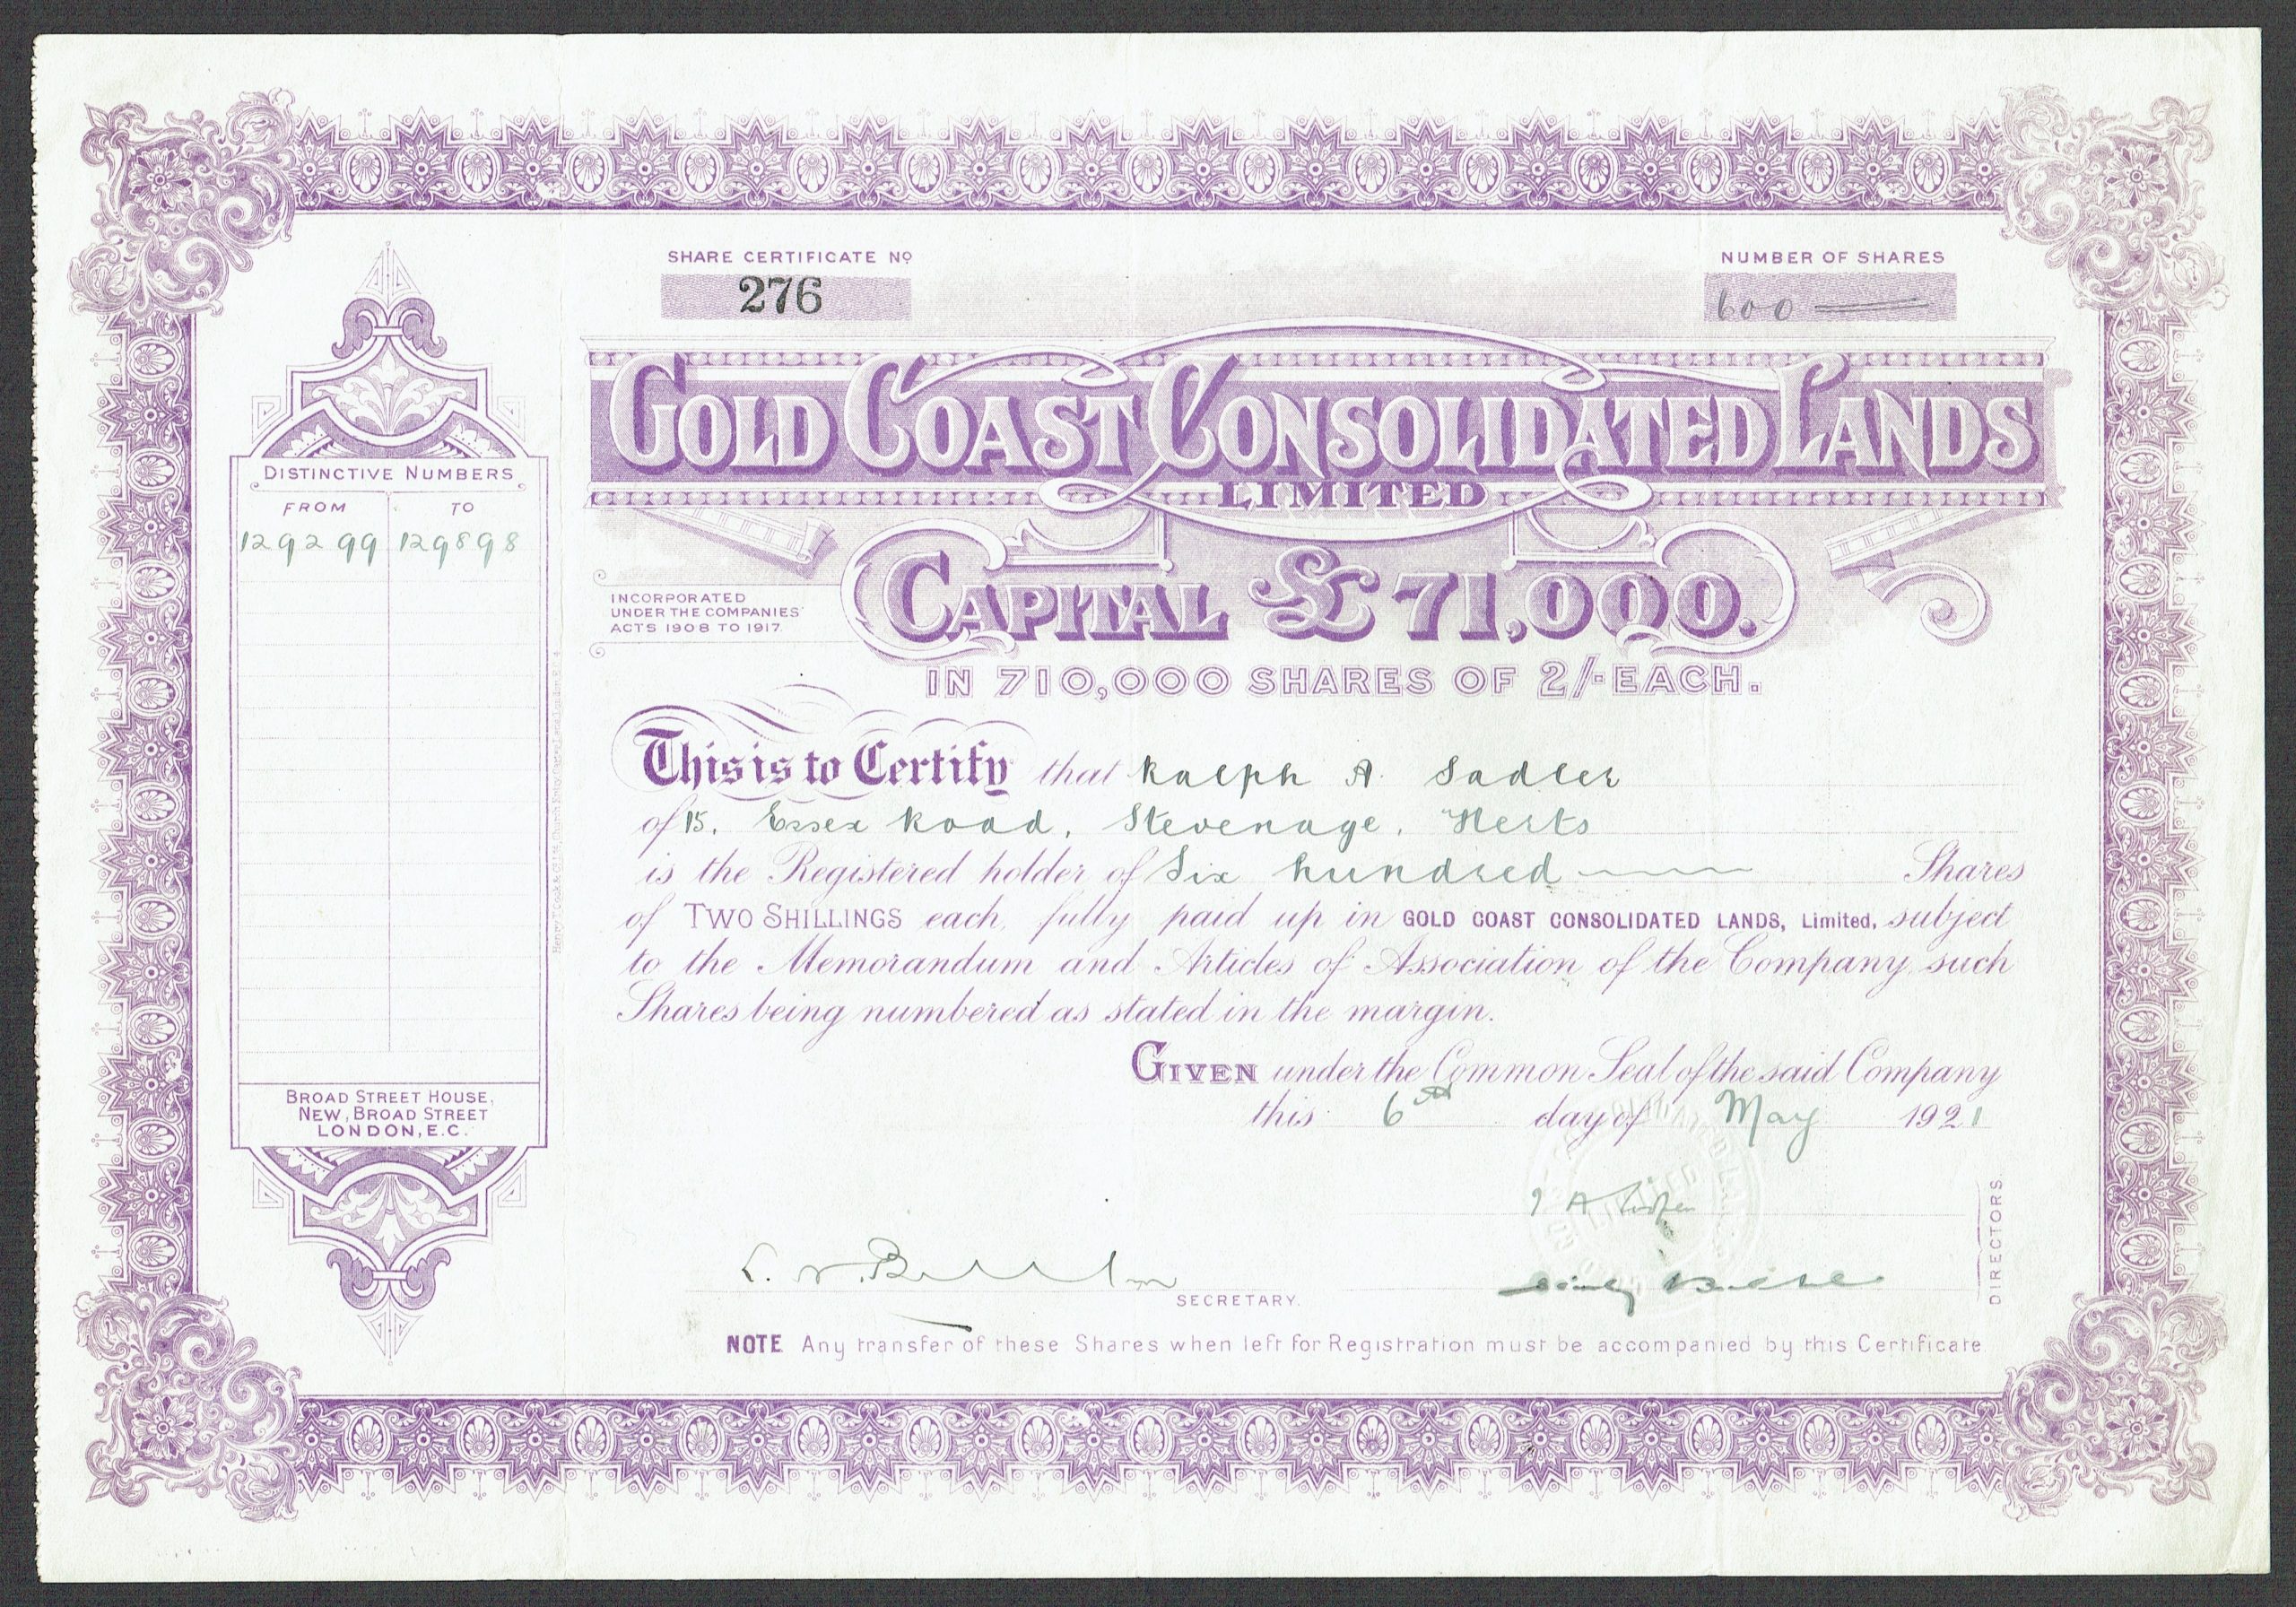 SHARE CERTIFICATE Nº
276
NUMBER OF SHARES
600
GOLD COAST CONSOLIDATED LANDS
LIMITED
CAPITAL £71,000.
IN 710,000 SHARES OF 2/- EACH.
INCORPORATED
UNDER THE COMPANIES'
ACTS 1908 TO 1917.
DISTINCTIVE NUMBERS
FROM TO
129299 129898
BROAD STREET HOUSE,
NEW, BROAD STREET
LONDON, E.C.
This is to Certify that Ralph A. Sadler
of 15, Essex Road, Stevenage, Herts
is the Registered holder of Six hundred Shares
of TWO SHILLINGS each, fully paid up in GOLD COAST CONSOLIDATED LANDS, Limited, subject
to the Memorandum and Articles of Association of the Company, such
Shares being numbered as stated in the margin.
GIVEN under the Common Seal of the said Company
this 6th day of May 1921
DIRECTORS.
SECRETARY.
NOTE Any transfer of these Shares when left for Registration must be accompanied by this Certificate.